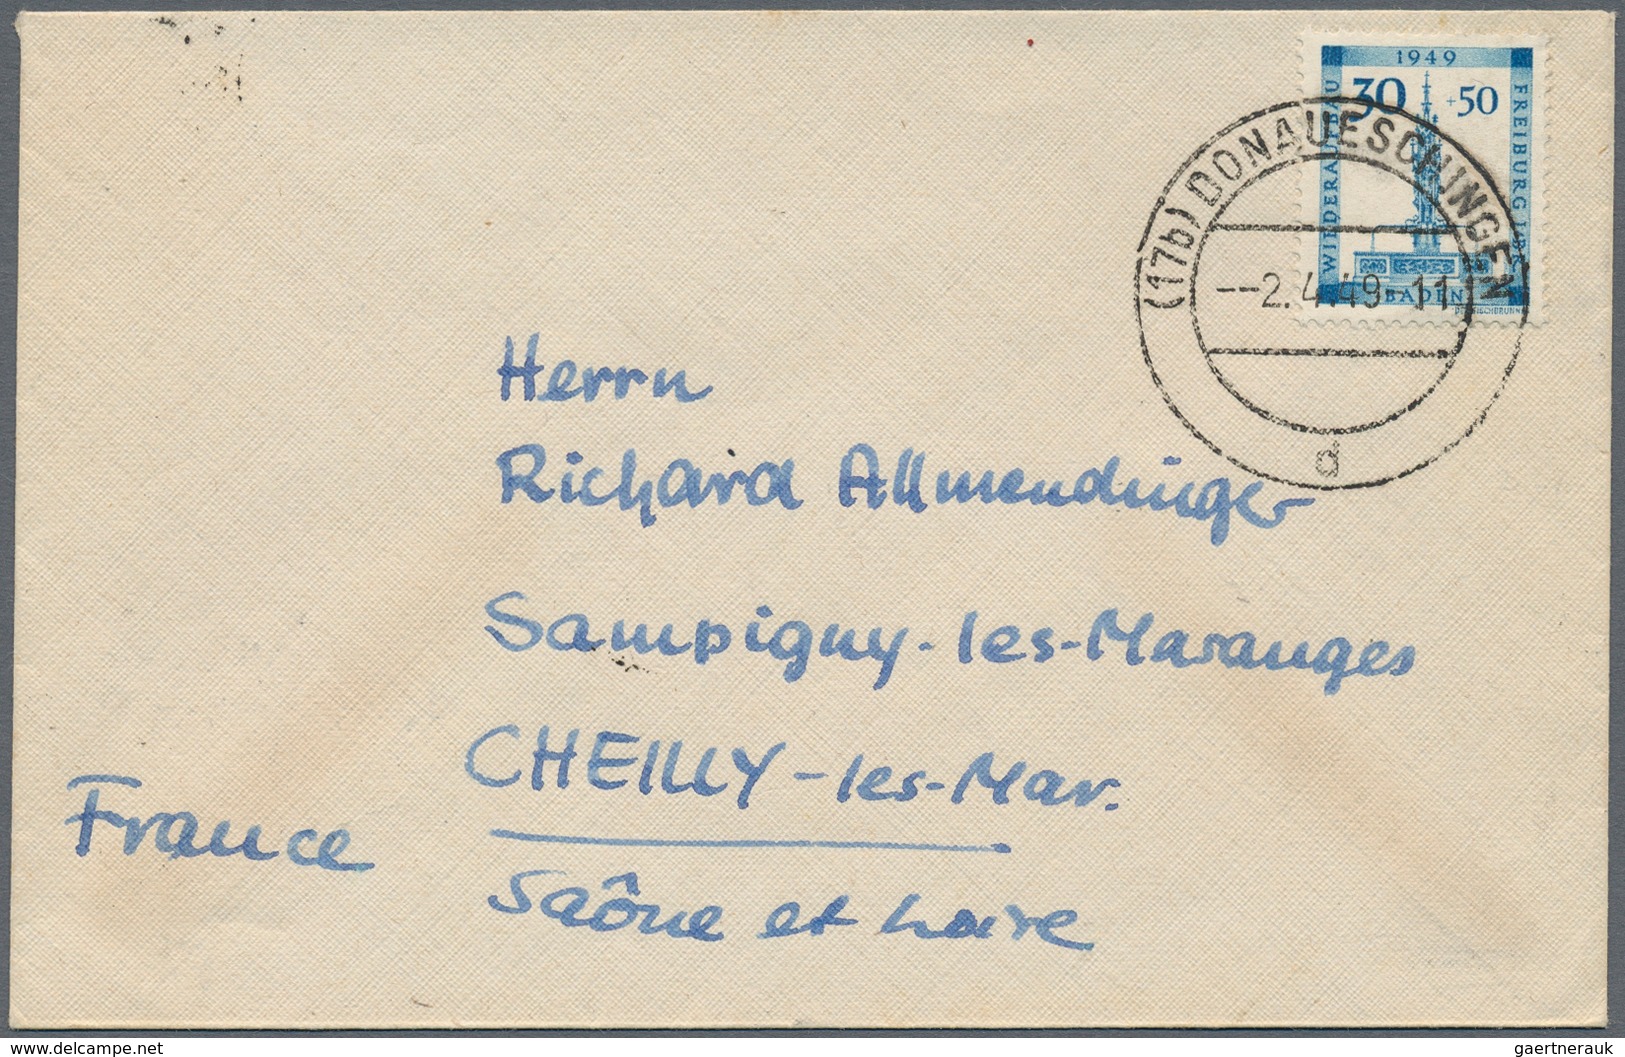 1949
30 +50
WIEDERAUFBAU
FREIBURG I.BR.
BADEN
(17b) DONAUESCHINGEN
--2.4.49-11
d
Herrn
Richard Allmendinger
Sampigny-les-Maranges
CHEILLY-les-Mar.
France
Saône et Loire
www.delcampe.net
gaertnerauk